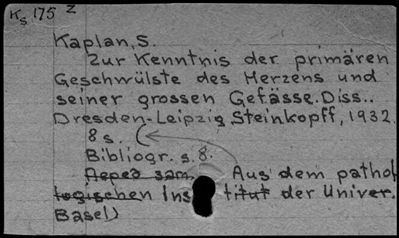 Ks 175 z
Kaplan, S.
Zur Kenntnis der primären
Geschwülste des Herzens und
seiner grossen Gefässe. Diss..
Dresden-Leipzig, Steinkopff, 1932.
8 s. (
Bibliogr. s. 8.
Aus dem pathol
ogischen Institut der Univer.
Basel)